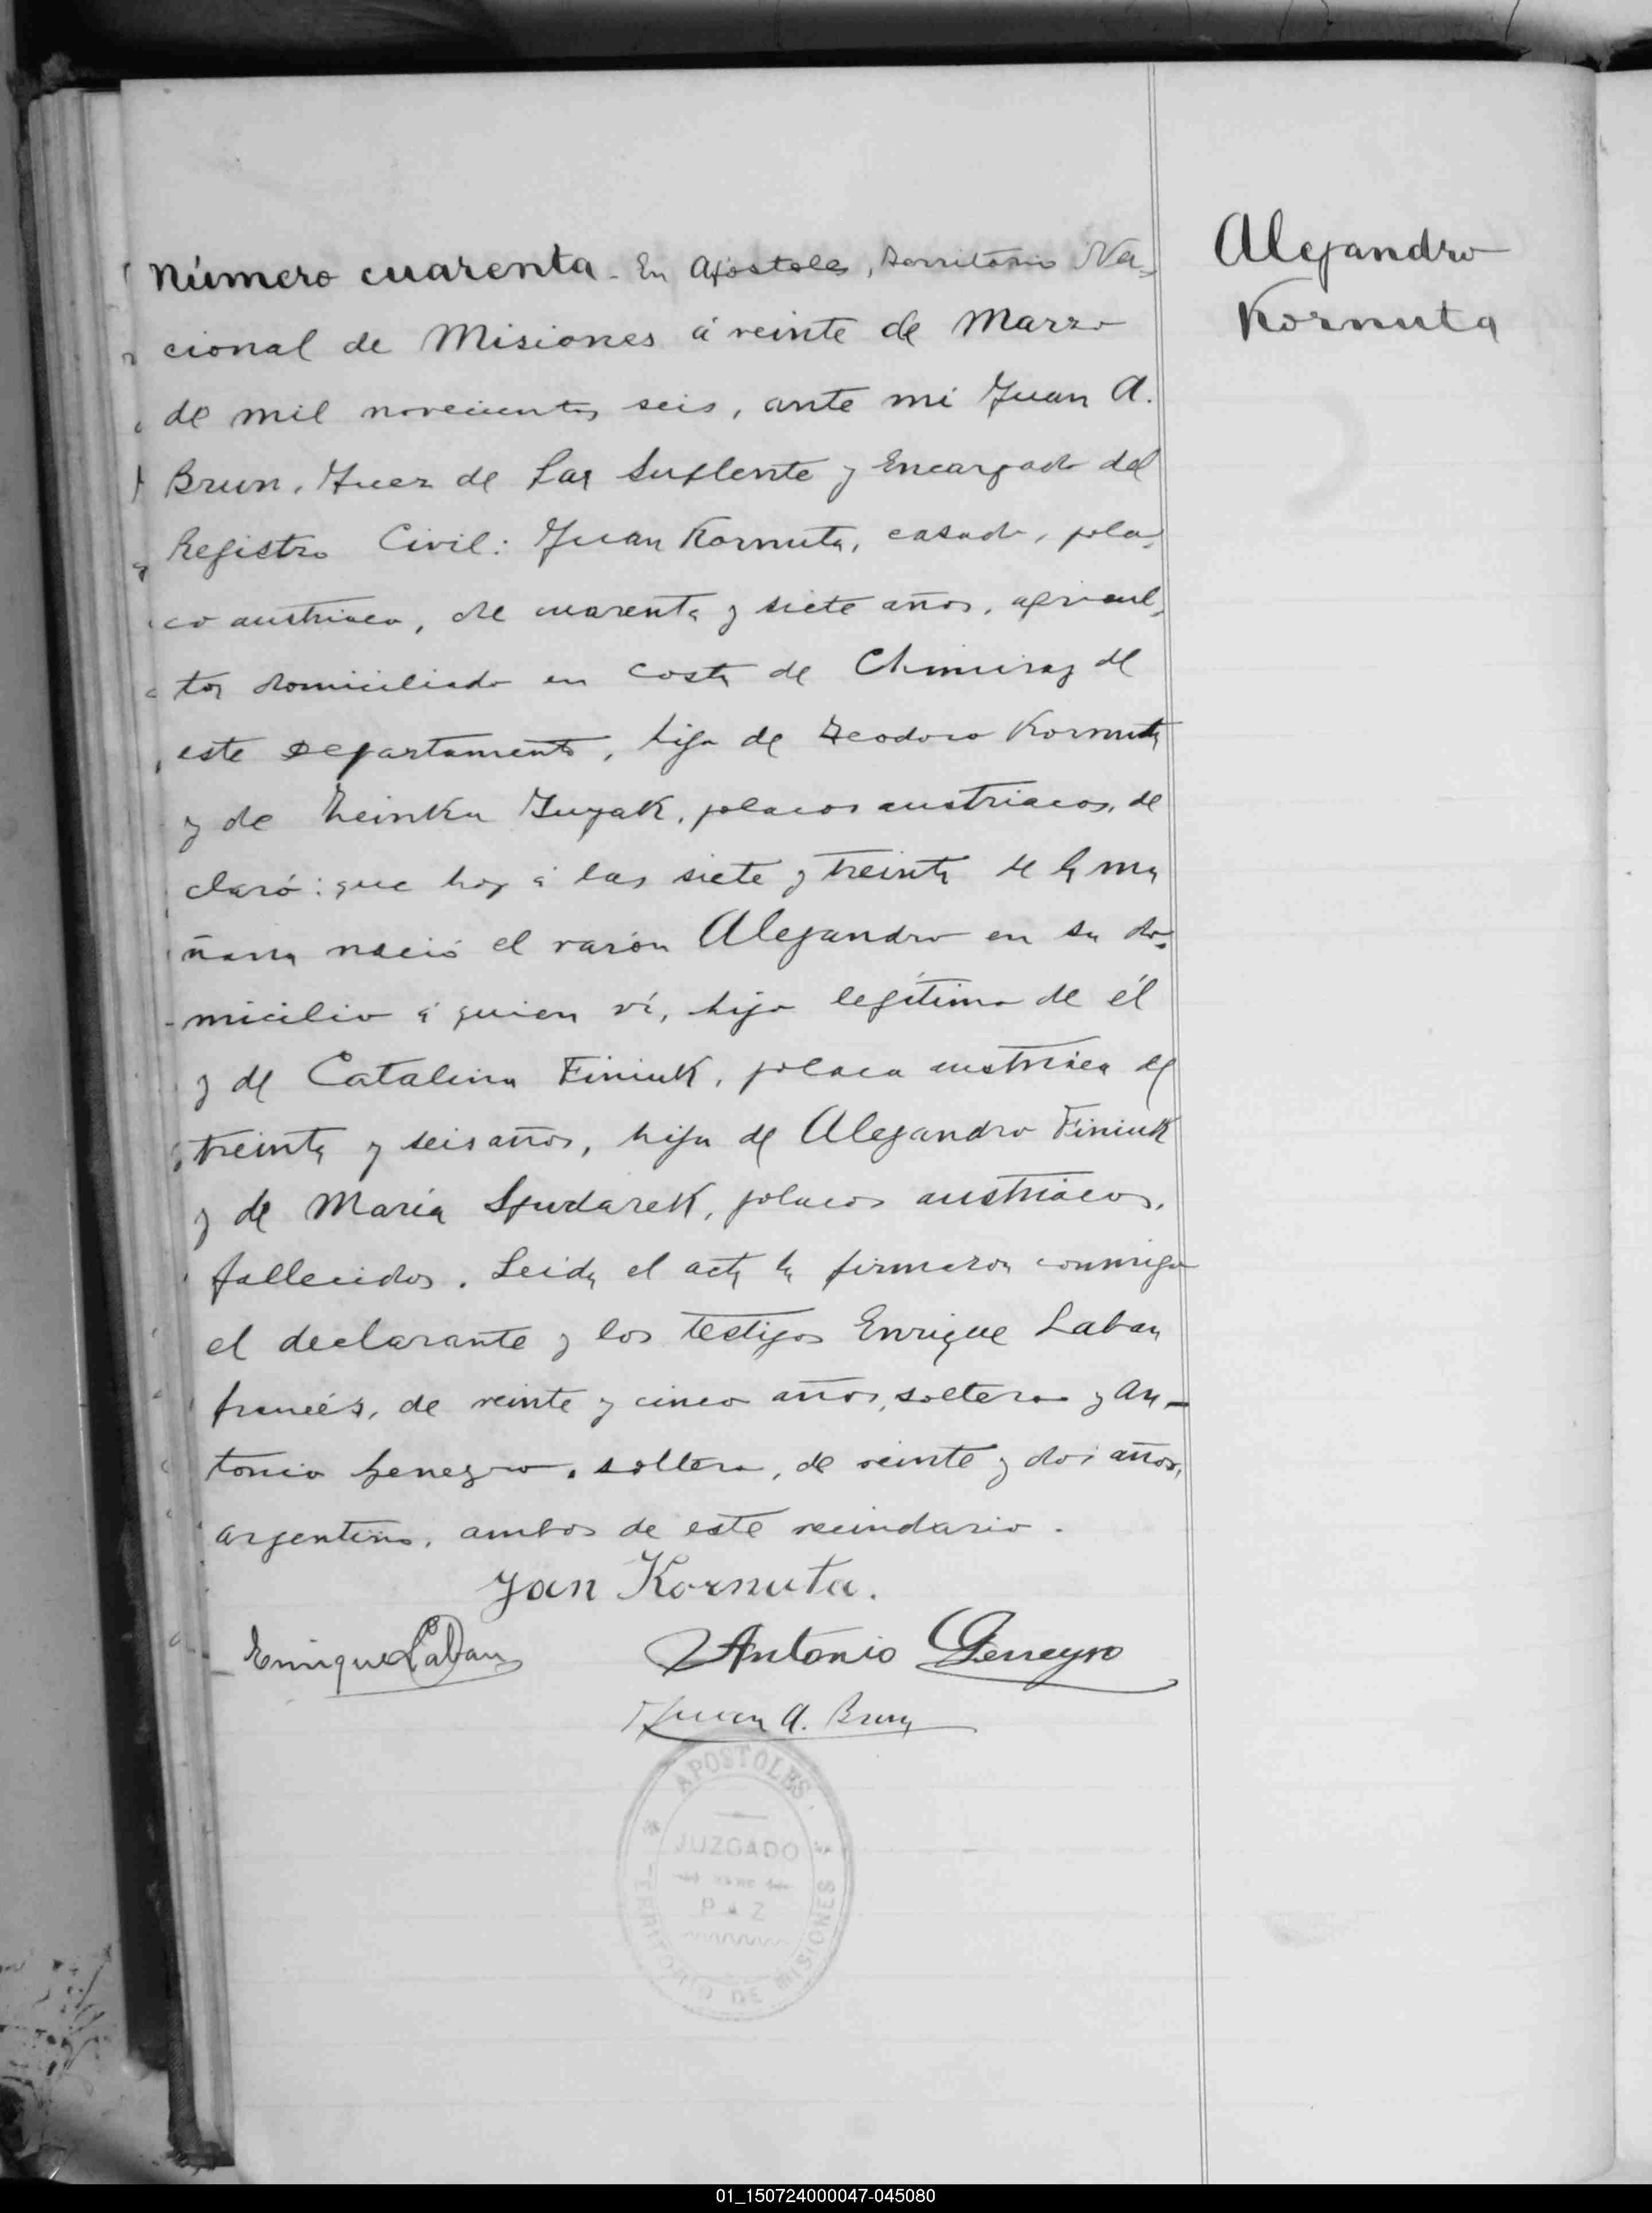 Alejandro
Kornuta
Número cuarenta - En Apóstoles, Territorio Na-
cional de Misiones á veinte de Marzo
de mil novecientos seis, ante mi Juan A.
Brun, Juez de Paz Suplente y Encargado del
Registro Civil: Juan Kornuta, casado, pola-
co austriaco, de cuarenta y siete años, agricul-
tor domiciliado en costa de Chimiray de
este Departamento, hijo de Teodoro Kornuta
y de Zuyak, polacos austriacos, de
claró: que hoy á las siete y treinta de la ma
ñana nació el varón Alejandro en su do-
micilio á quien ví, hijo legítimo de él
y de Catalina Finiuk, polaca austriaca de
treinta y seis años, hija de Alejandro Finiuk
y de María Spudarek, polacos austriacos,
fallecidos. Leida el acta la firmaron conmigo
el declarante y los testigos Enrique Laban
francés, de veinte y cinco años, soltero y An-
tonio Geneyro, soltero, de veinte y dos años,
argentino, ambos de este vecindario.
Jan Kornuta.
Enrique Laban Antonio Geneyro
Juan A. Brun
APOSTOLES
JUZGADO
PAZ
TERRITORIO DE MISIONES
01_150724000047-045080